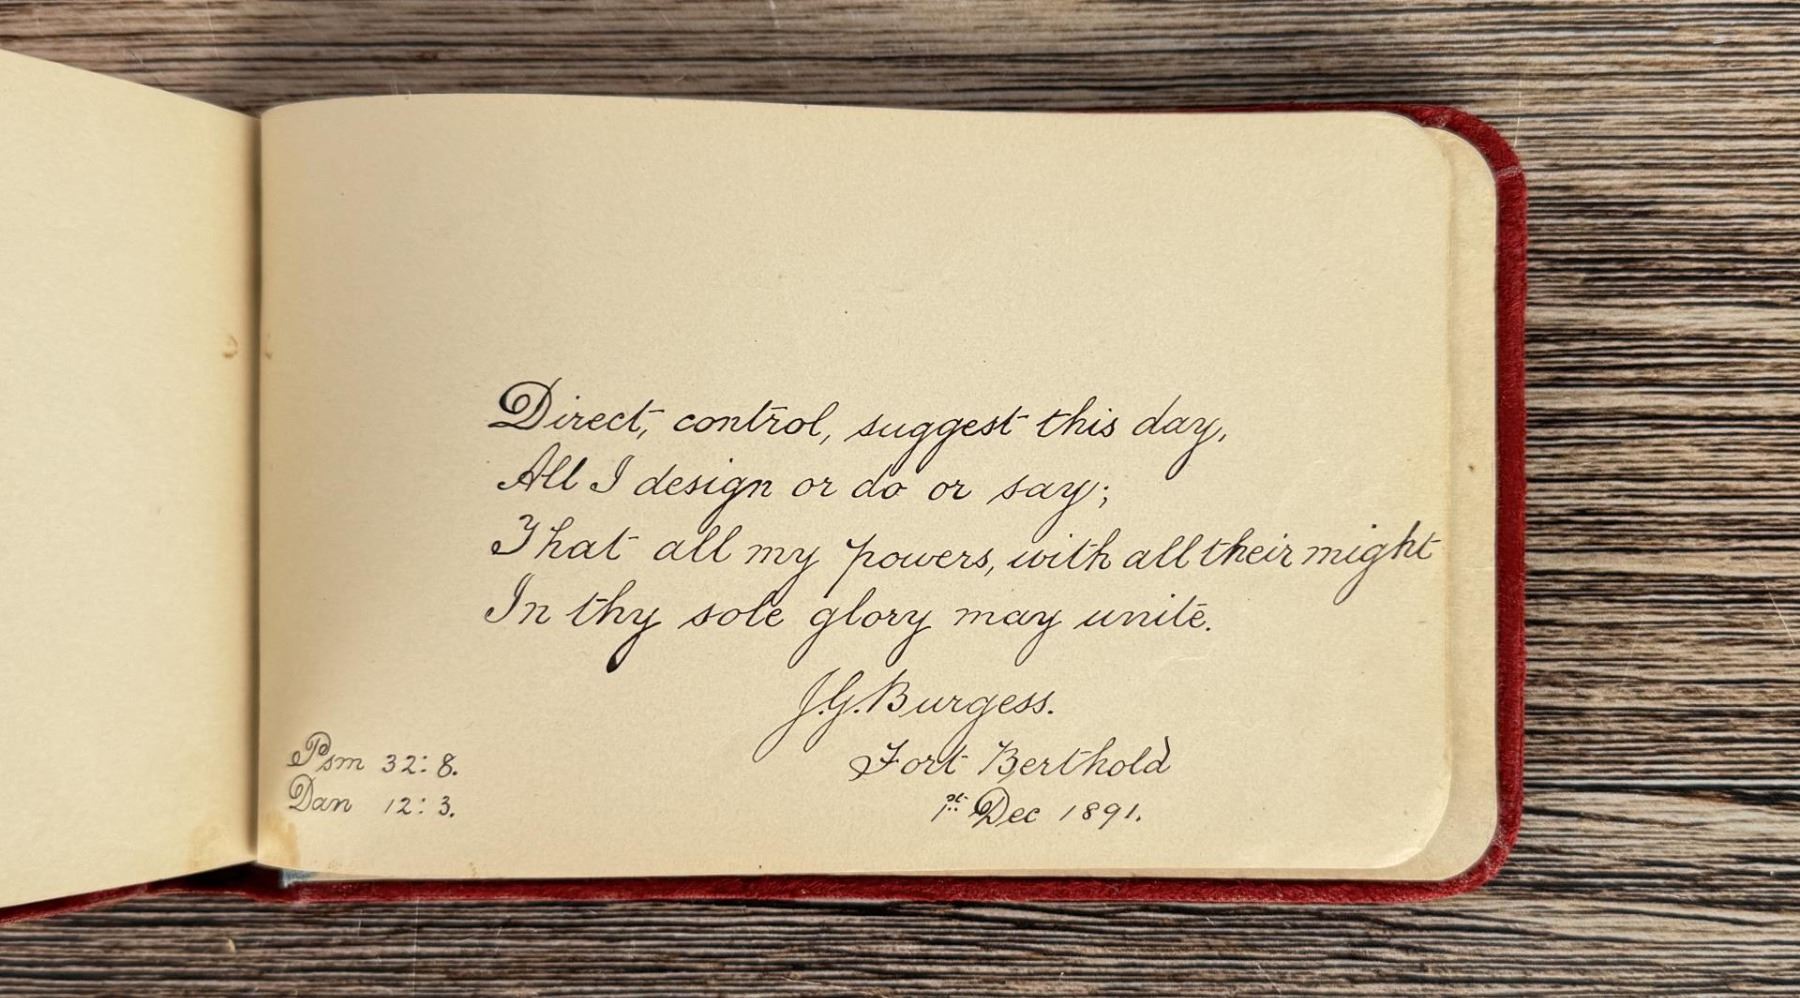 Direct, control, suggest this day,
All I design or do or say;
That all my powers, with all their might
In thy sole glory may unite.
J.G. Burgess.
Fort Berthold
1st Dec 1891.
Psm 32:8.
Dan 12:3.